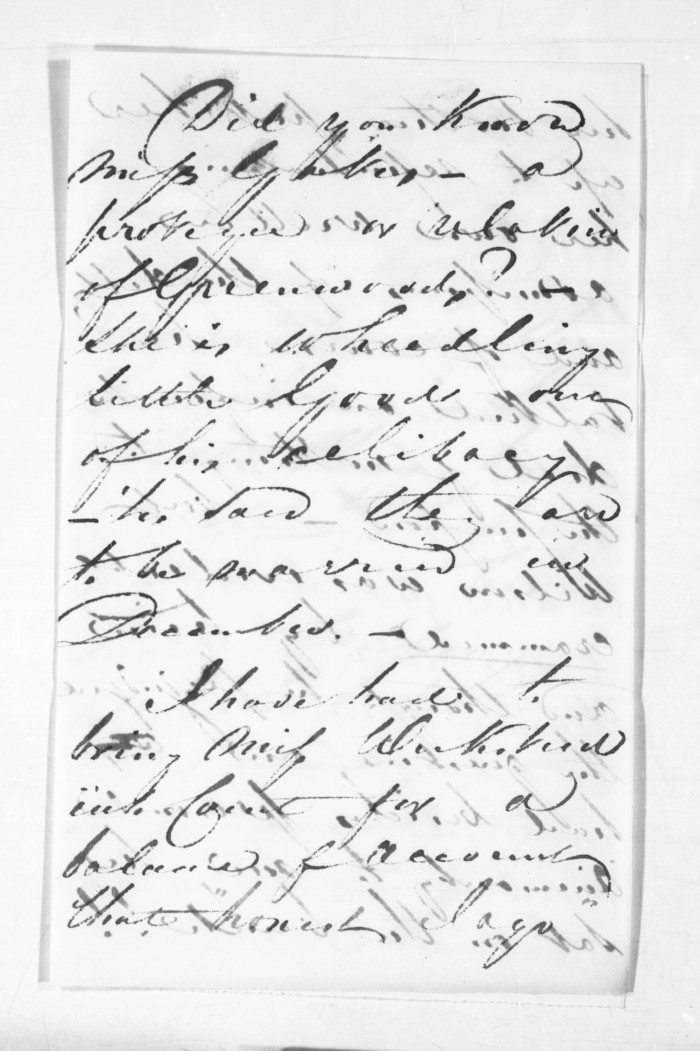 Did you know
Miss — a
protegee or relation
of Greenwoods? —
She is wheedling
little Goods out
of his celibacy
— 'tis said — they are
to be married in
December. —
I have had to
bring Miss
into Court for a
balance of account
that "honest Iago"